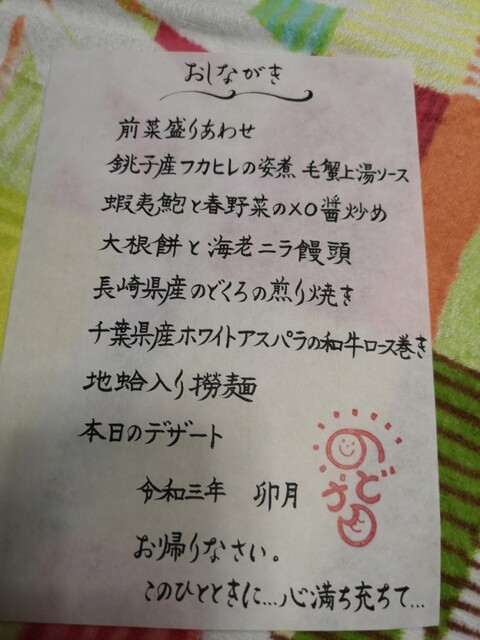 おしながき
前菜盛りあわせ
銚子産フカヒレの姿煮 毛蟹上湯ソース
蝦夷鮑と春野菜のXO醤炒め
大根餅と海老ニラ饅頭
長崎県産のどくろの煎り焼き
千葉県産ホワイトアスパラの和牛ロース巻き
地蛤入り撈麺
本日のデザート
令和三年 卯月
お帰りなさい。
このひとときに...心満ち充ちて...